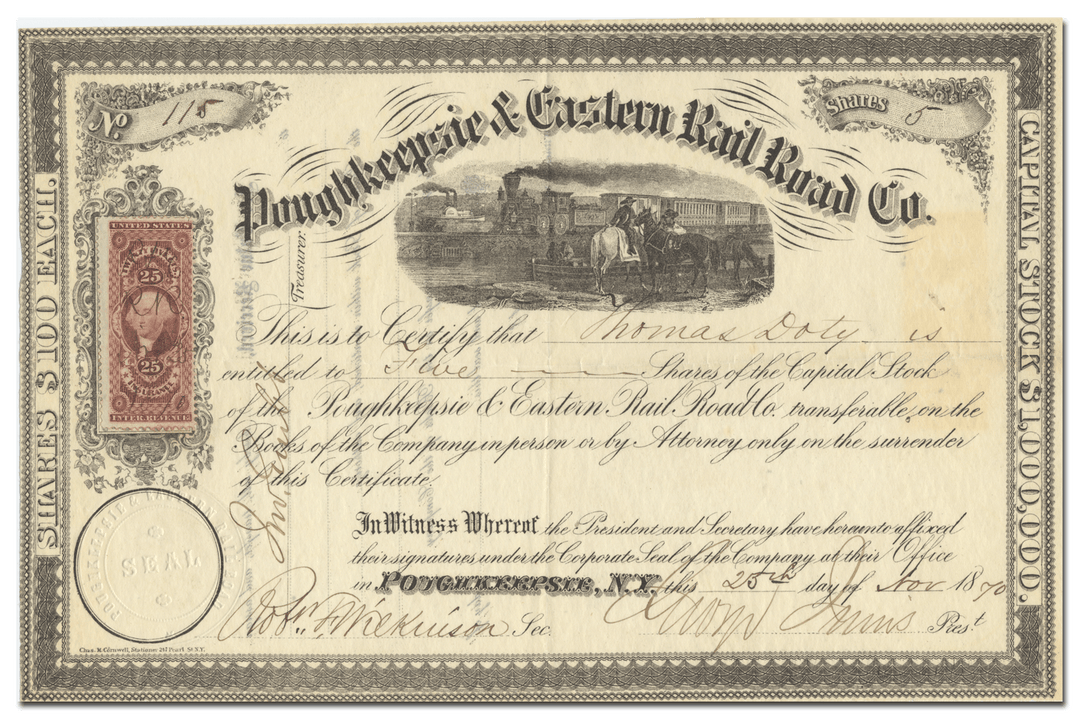 No. 115
Shares 5
Poughkeepsie & Eastern Rail Road Co.
SHARES $100 EACH.
CAPITAL STOCK $1,000,000.
UNITED STATES
25
25
INTER. REVENUE
Treasurer.
This is to Certify that Thomas Doty is
entitled to Five Shares of the Capital Stock
of the Poughkeepsie & Eastern Rail Road Co. transferable, on the
Books of the Company in person or by Attorney only on the surrender
of this Certificate
In Witness Whereof the President and Secretary have hereunto affixed
their signatures under the Corporate Seal of the Company at their Office
in POUGHKEEPSIE, N.Y. this 25th day of Nov 1870
SEAL
Robt. F. Wilkinson Sec.
George Innis Prest
Chas. H. Cornwell, Stationer 247 Pearl St. N.Y.